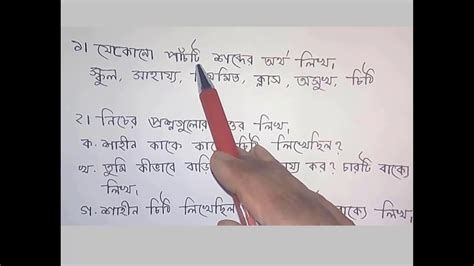 ১। যেকোনো পাঁচটি শব্দের অর্থ লিখ।
স্কুল, সাহায্য, নিয়মিত, ক্লাস, অসুখ, চিঠি
২। নিচের প্রশ্নগুলোর উত্তর লিখ।
ক. শাহীন কাকে চিঠি লিখেছিল?
খ. তুমি কীভাবে কর? চারটি বাক্যে
লিখ।
গ. শাহীন চিঠি লিখেছিল বাক্যে লিখ।